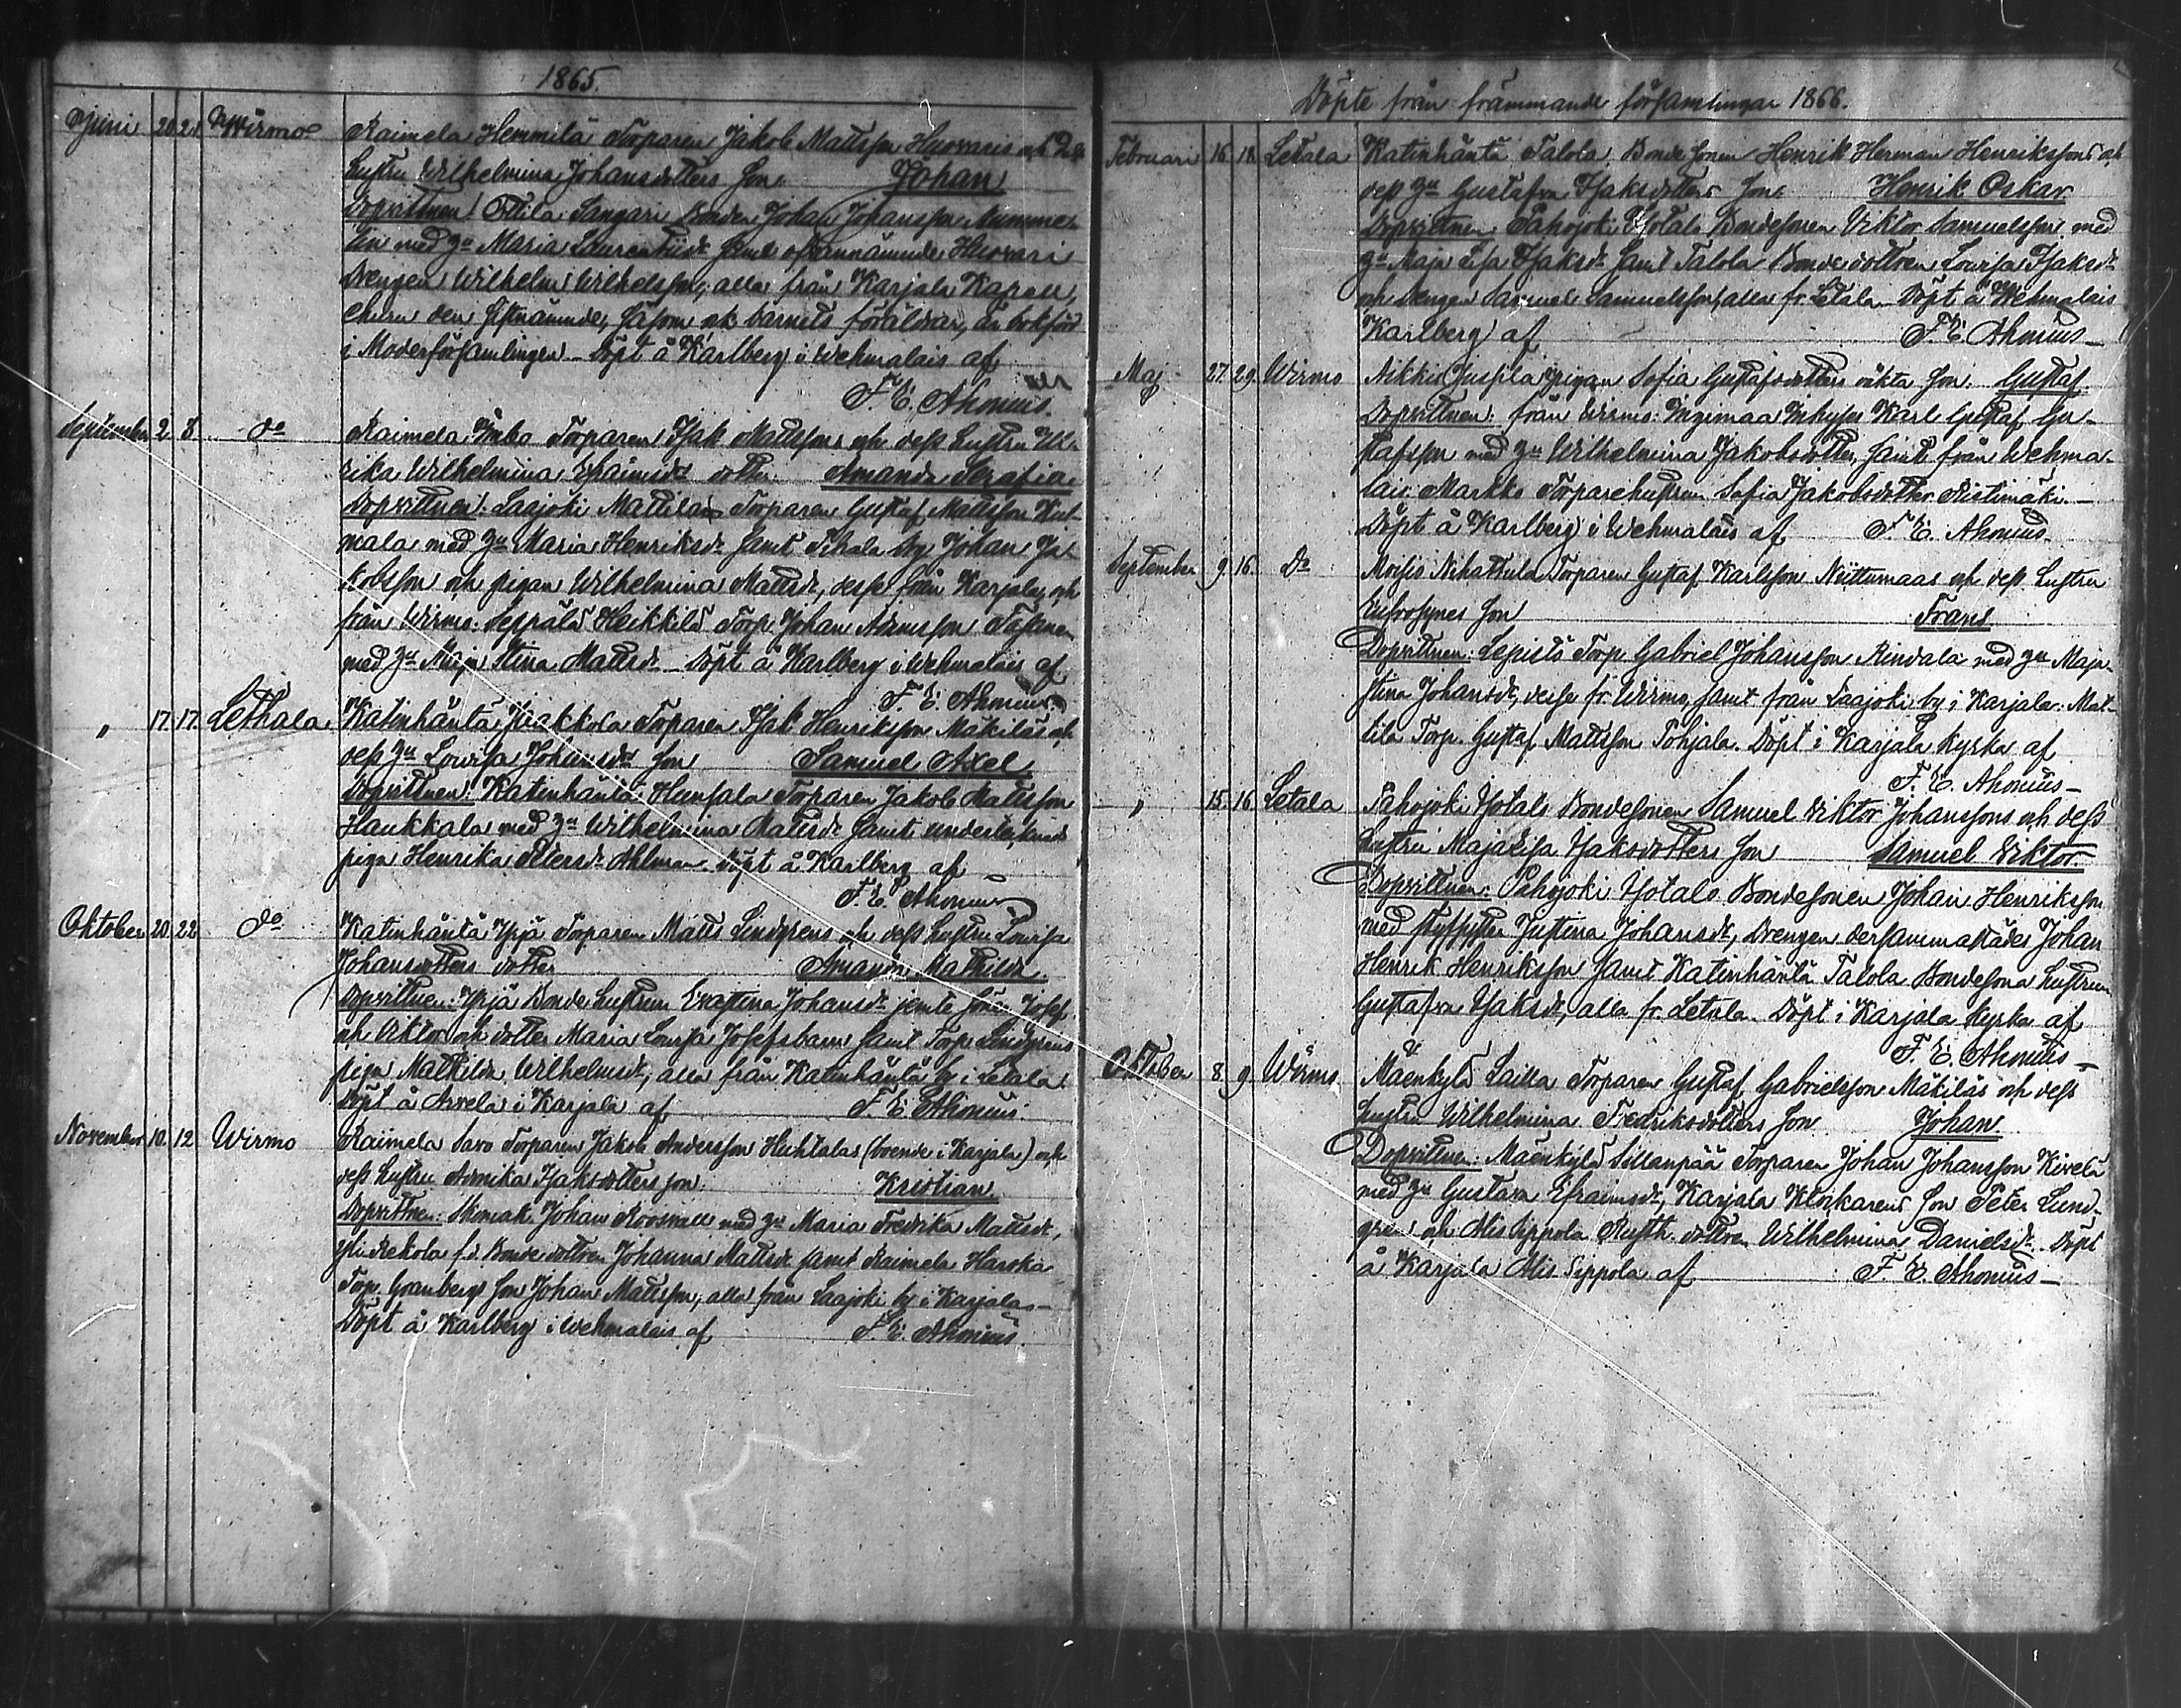 1865.
Juni 20. 21. Wirmo Raimela Hemmilä Torparen Jakob Mattsson Huovaris och dess
hustru Wilhelmina Johansdotters son. Johan
Dopvittnen: Ottila Sangari Bonden Johan Johansson Numme-
lin med h:u Maria Laurentiidr samt ofvannämnde Huovari
Drengen Wilhelm Wilhelsson, alla från Karjala Kapell,
ehuru den sistnämnde, såsom ock barnets föräldrar, är bokförd
i Moderförsamlingen. Döpt å Karlberg i Wehmalais af
F. E. Ahonius.
September 2. 8. do Raimela Torparen Isak Mattssons och dess hustru Ul-
rika Wilhelmina Efraimsdrs dotter Amanda Serafia.
Dopvittnen: Laajoki Mattila Torparen Gustaf Mattsson Kul-
mala med h:u Maria Henriksdr samt by Johan Ja-
kobsson och pigan Wilhelmina Mattsdr, desse från Karjala, och
från Wirmo: Heikkilä Torp. Johan
med h:u Maja Stina Mattsdr. Döpt å Karlberg i Wehmalais af
F. E. Ahonius.
" 17. 17. Lethala. Katinhäntä Jaakkola Torparen Isak Henriksson Mäkiläs och
dess h:u Lovisa Johansdrs son Samuel Axel.
Dopvittnen: Katinhäntä Torparen Jakob Mattsson
Haukkala med h:u Wilhelmina Mattsdr samt
piga Henrika Petersdr Ahlman. Döpt å Karlberg af
F. E. Ahonius
Oktober 20. 22. do Katinhäntä Yrjä Torparen Matts Lindgrens och dess hustru Lovisa
Johansdotters dotter Amanda Mathilda.
Dopvittnen: Yrjä Bonde hustrun Evastina Johansdr jemte söner Josef
och Viktor och dotter Maria Lovisa Josefsbarn samt Torp. Lindgrens
piga Mathilda Wilhelmsdr, alla från Katinhäntä by i Letala.
Döpt å Arvela i Karjala af F. E. Ahonius.
November 10. 12 Wirmo Raimela Savo Torparen Jakob Andersson Huhtalas (boende i Karjala) och
dess hustru Annika Isaksdotters son. Kristian
Dopvittnen: Johan Roosvall med h:u Maria Fredrika Mattsdr,
Yli Rekola f.d. Bonde dottren Johanna Mattsdr samt Raimela Harska
Torp. Granbergs son Johan Mattsson, alla från Laajoki by i Karjala
Döpt å Karlberg i Wehmalais af F. E. Ahonius.
Döpte från främmande församlingar 1866.
Februari 16. 18. Letala Katinhäntä Talola Bonde sonen Henrik Herman Henrikssons och
dess h:u Gustafva Isaksdotters son. Henrik Oskar.
Dopvittnen: Pahojoki Isotalo Bondesonen Viktor Samuelsson med
h:u Maja Lisa Isaksdr samt Talola Bonde dottren Lovisa Isaksdr
och drengen Samuel Samuelsson, alla fr. Letala. Döpt å Wehmalais
Karlberg af F. E. Ahonius
Maj 27. 29. Wirmo Nikkis pigan Sofia Gustafsdotters oäkta son. Gustaf.
Dopvittnen: från Wirmo: Inhyses Karl Gustaf Gu-
stafsson med h:u Wilhelmina Jakobsdotter, samt från Wehma-
lais: Markko Torparehustrun Sofia Jakobsdotter Ristimäki.
Döpt å Karlberg i Wehmalais af F. E. Ahonius.
September 9. 16. do Moisio Nihattula Torparen Gustaf Karlsson Niittumaas och dess hustru
Eufrosynes son Frans
Dopvittnen: Lepistö Torp. Gabriel Johansson Rindala med h:u Maja
Stina Johansdr, desse fr. Wirmo, samt från Laajoki by i Karjala: Mat-
tila Torp. Gustaf Mattsson Pohjala. Döpt i Karjala kyrka af
F. E. Ahonius
" 15. 16 Letala Pahojoki Isotalo Bondesonen Samuel Viktor Johanssons och dess
hustru Maja Lisa Isaksdotters son Samuel Viktor.
Dopvittnen: Pahojoki Isotalo Bondesonen Johan Henriksson
med Justina Johansdr, Drengen dersammastädes Johan
Henrik Henriksson samt Katinhäntä Talola Bondesons hustrun
Gustafva Isaksdr, alla fr. Letala. Döpt i Karjala kyrka af
F. E. Ahonius
Oktober 8. 9. Wirmo Mäenkylä Lailla Torparen Gustaf Gabrielsson Mäkiläs och dess
hustru Wilhelmina Fredriksdotters son Johan.
Dopvittnen: Mäenkylä Sillanpää Torparen Johan Johansson Kivelä
med h:u Gustava Efraimsdr, Karjala Klockarens son Peter Lund-
gren och Alis Sippola Rusth. dottren Wilhelmina Danielsdr. Döpt
å Karjala Alis Sippola af F. E. Ahonius